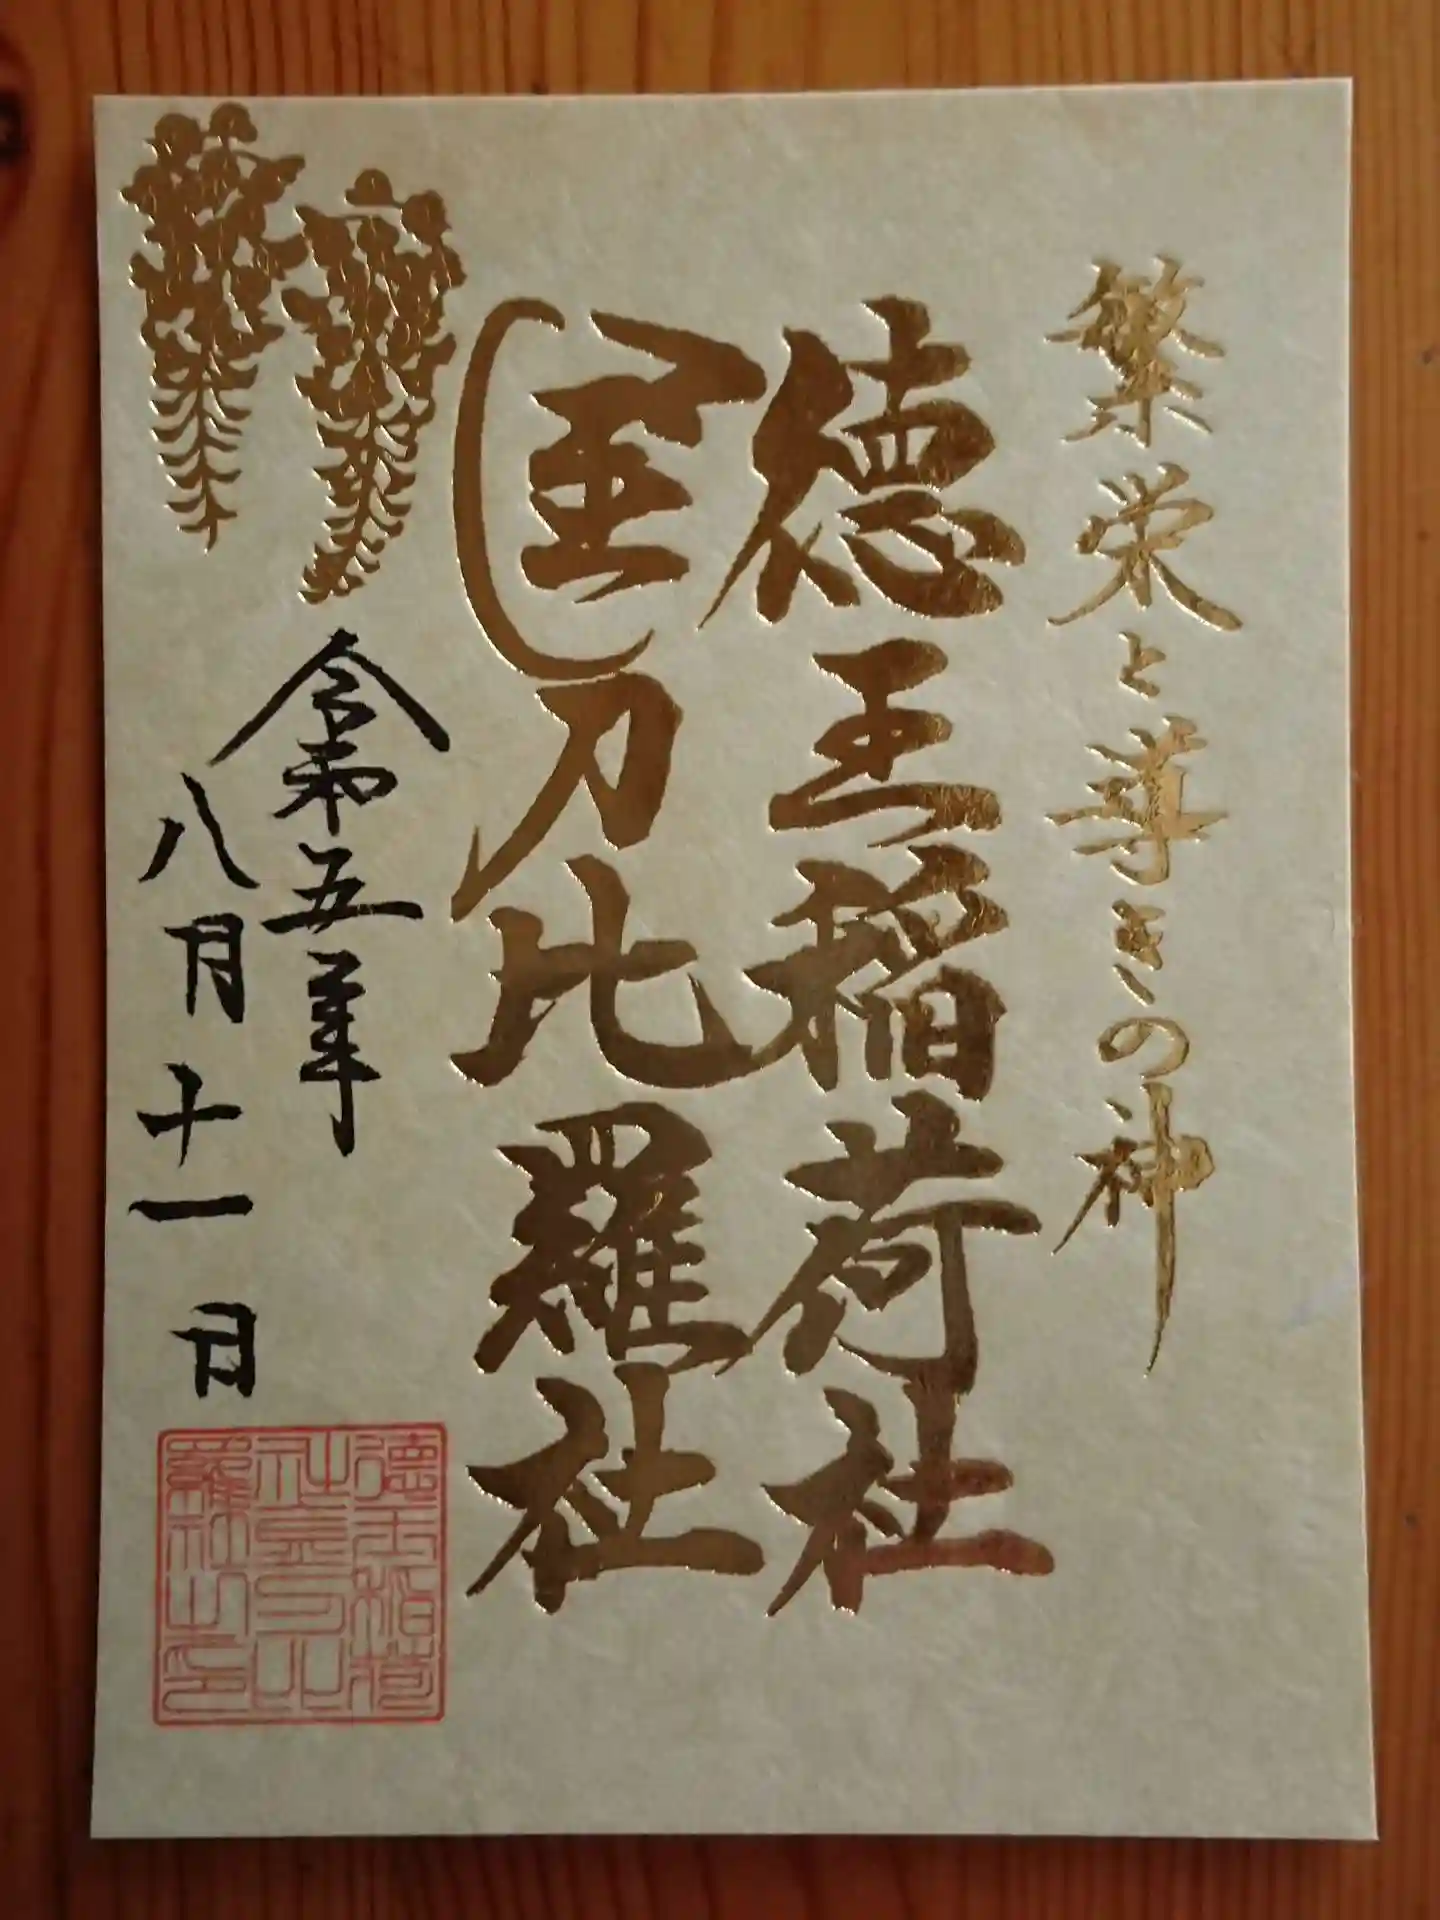 繁栄と導きの神
徳王稲荷社
金刀比羅社
令和五年
八月十一日
徳王稲荷
社金刀比
羅社之印